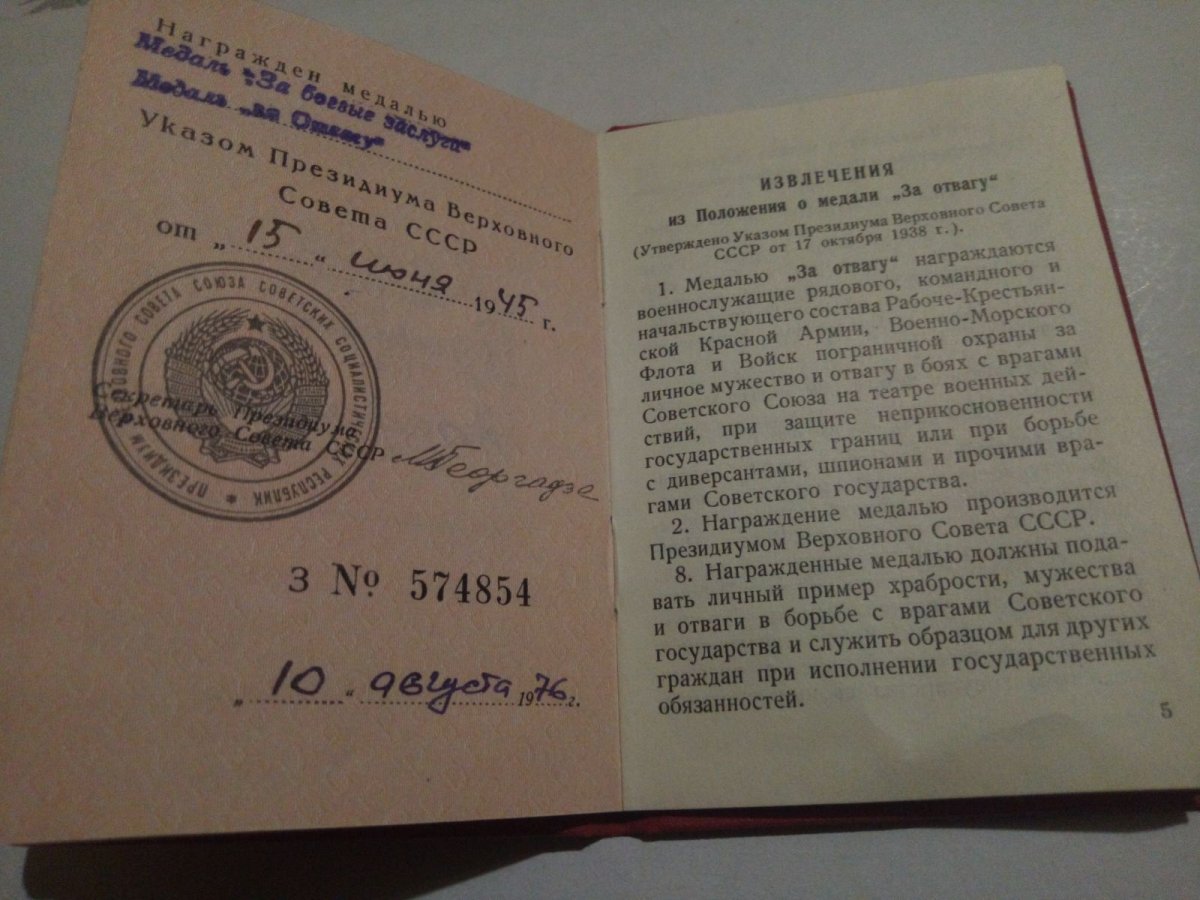 Награжден медалью
Медаль „За боевые заслуги"
Медаль „за Отвагу"
Указом Президиума Верховного
Совета СССР
от „15" июня 1945 г.
ПРЕЗИДИУМ ВЕРХОВНОГО СОВЕТА СОЮЗА СОВЕТСКИХ СОЦИАЛИСТИЧЕСКИХ РЕСПУБЛИК *
Секретарь Президиума
Верховного Совета СССР МГеоргадзе
З № 574854
„10" августа 1976 г.
ИЗВЛЕЧЕНИЯ
из Положения о медали „За отвагу"
(Утверждено Указом Президиума Верховного Совета
СССР от 17 октября 1938 г.).
1. Медалью „За отвагу" награждаются
военнослужащие рядового, командного и
начальствующего состава Рабоче-Крестьян-
ской Красной Армии, Военно-Морского
Флота и Войск пограничной охраны за
личное мужество и отвагу в боях с врагами
Советского Союза на театре военных дей-
ствий, при защите неприкосновенности
государственных границ или при борьбе
с диверсантами, шпионами и прочими вра-
гами Советского государства.
2. Награждение медалью производится
Президиумом Верховного Совета СССР.
8. Награжденные медалью должны пода-
вать личный пример храбрости, мужества
и отваги в борьбе с врагами Советского
государства и служить образцом для других
граждан при исполнении государственных
обязанностей.
5